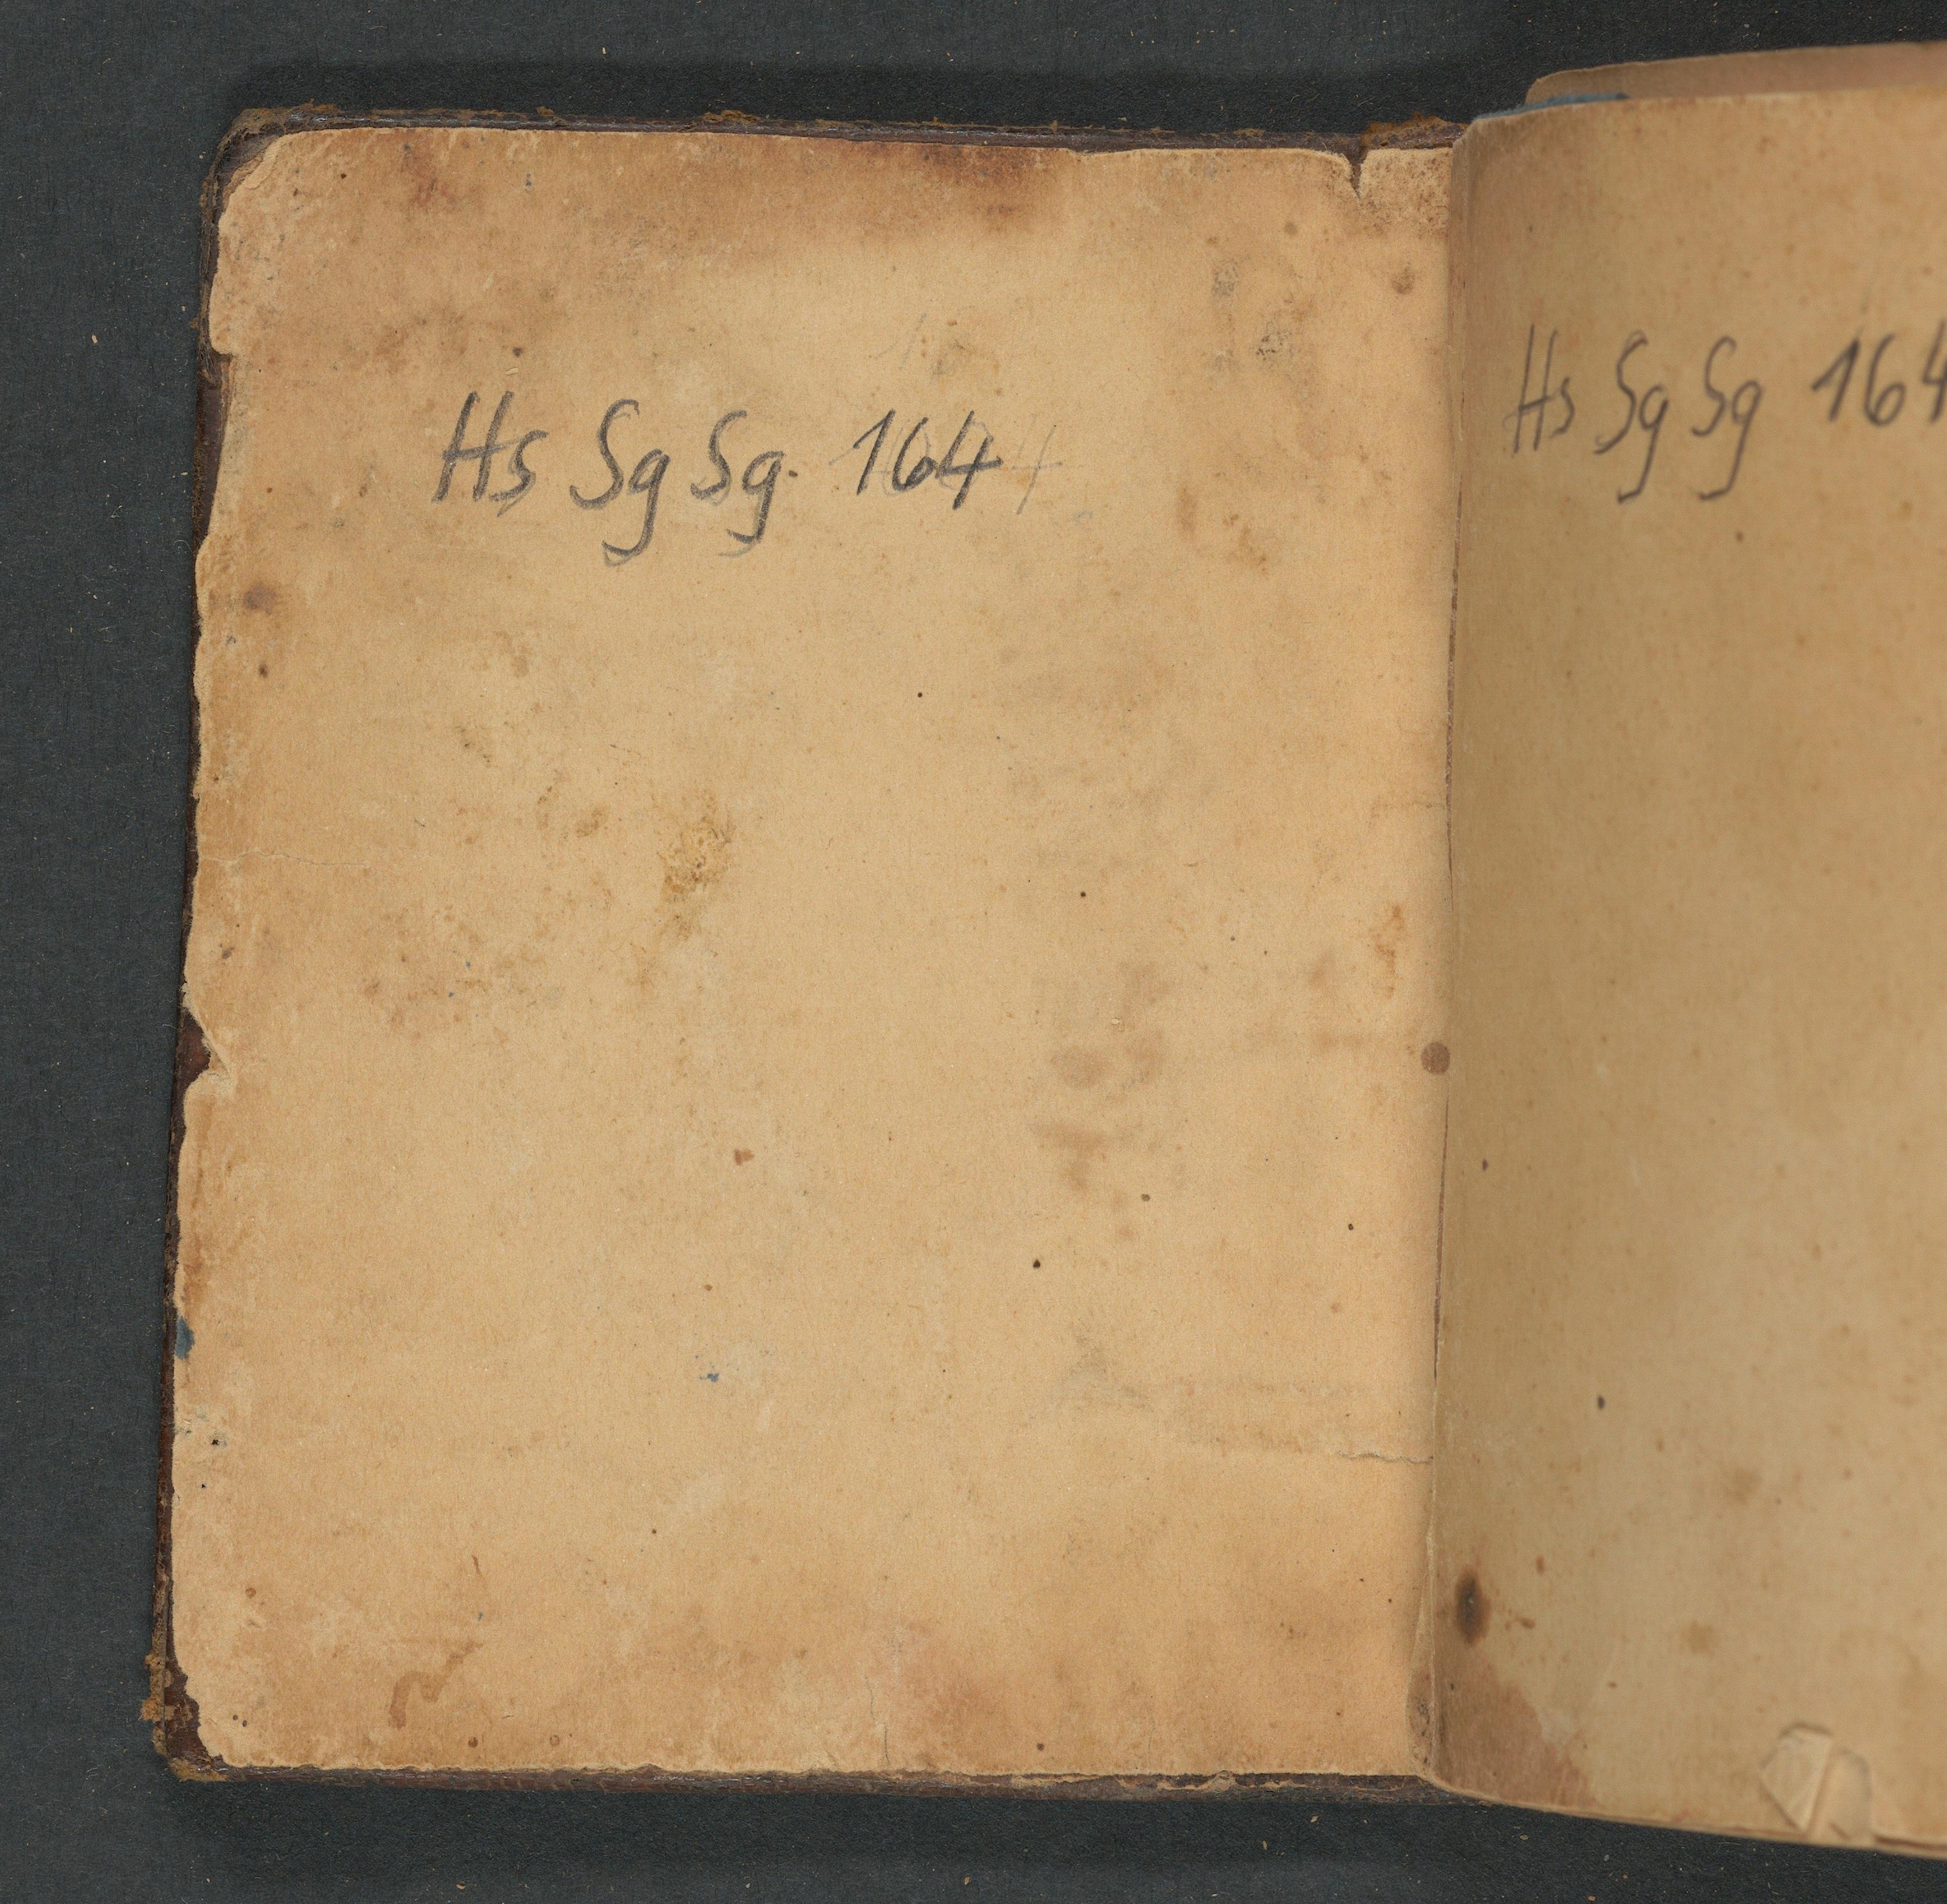 Hs Sg Sg. 164
Hs Sg Sg 164